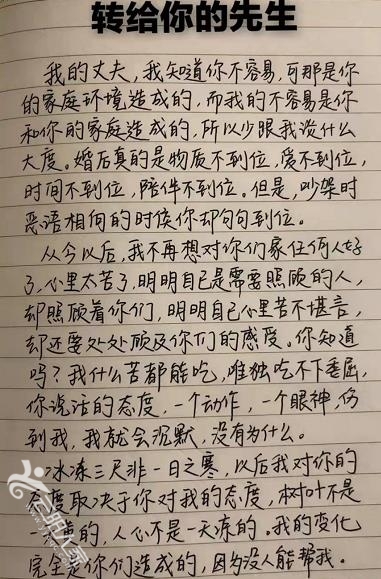 转给你的先生
我的丈夫,我知道你不容易,可那是你
的家庭环境造成的,而我的不容易是你
和你的家庭造成的,所以少跟我谈什么
大度。婚后真的是物质不到位,爱不到位,
时间不到位,陪伴不到位。但是,吵架时
恶语相向的时候你却句句到位。
从今以后,我不再想对你们家任何人好
了,心里太苦了,明明自己是需要照顾的人,
却照顾着你们,明明自己心里苦不堪言,
却还要处处顾及你们的感受。你知道
吗?我什么苦都能吃,唯独吃不下委屈,
你说话的态度,一个动作,一个眼神,伤
到我,我就会沉默,没有为什么。
冰冻三尺非一日之寒,以后我对你的
态度取决于你对我的态度,树叶不是
一天黄的,人心不是一天凉的。我的变化
完全是你们造成的,因为没人能帮我。